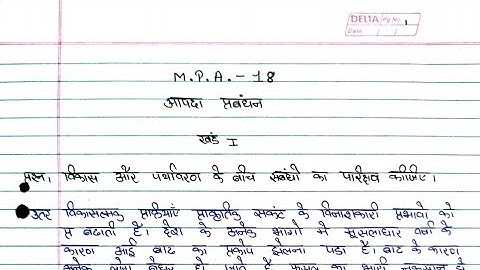 DELTA Pg No. 1
Date
M.P.A. - 18
आपदा प्रबंधन
खंड I
प्रश्न 1 विकास और पर्यावरण के बीच संबंधो का परीक्षण कीजिए।
उत्तर विकासात्मक प्राकृतिक संकट के विनाशकारी प्रभावो को
बढाती हैं। देश के अनेक भागो में मूसलाधार वर्षा के
कारण आई बाढ का प्रकोप झेलना पडा है। बाढ के कारण
अनेक लोग हो जाते हैं फसल का भारी नुकसान